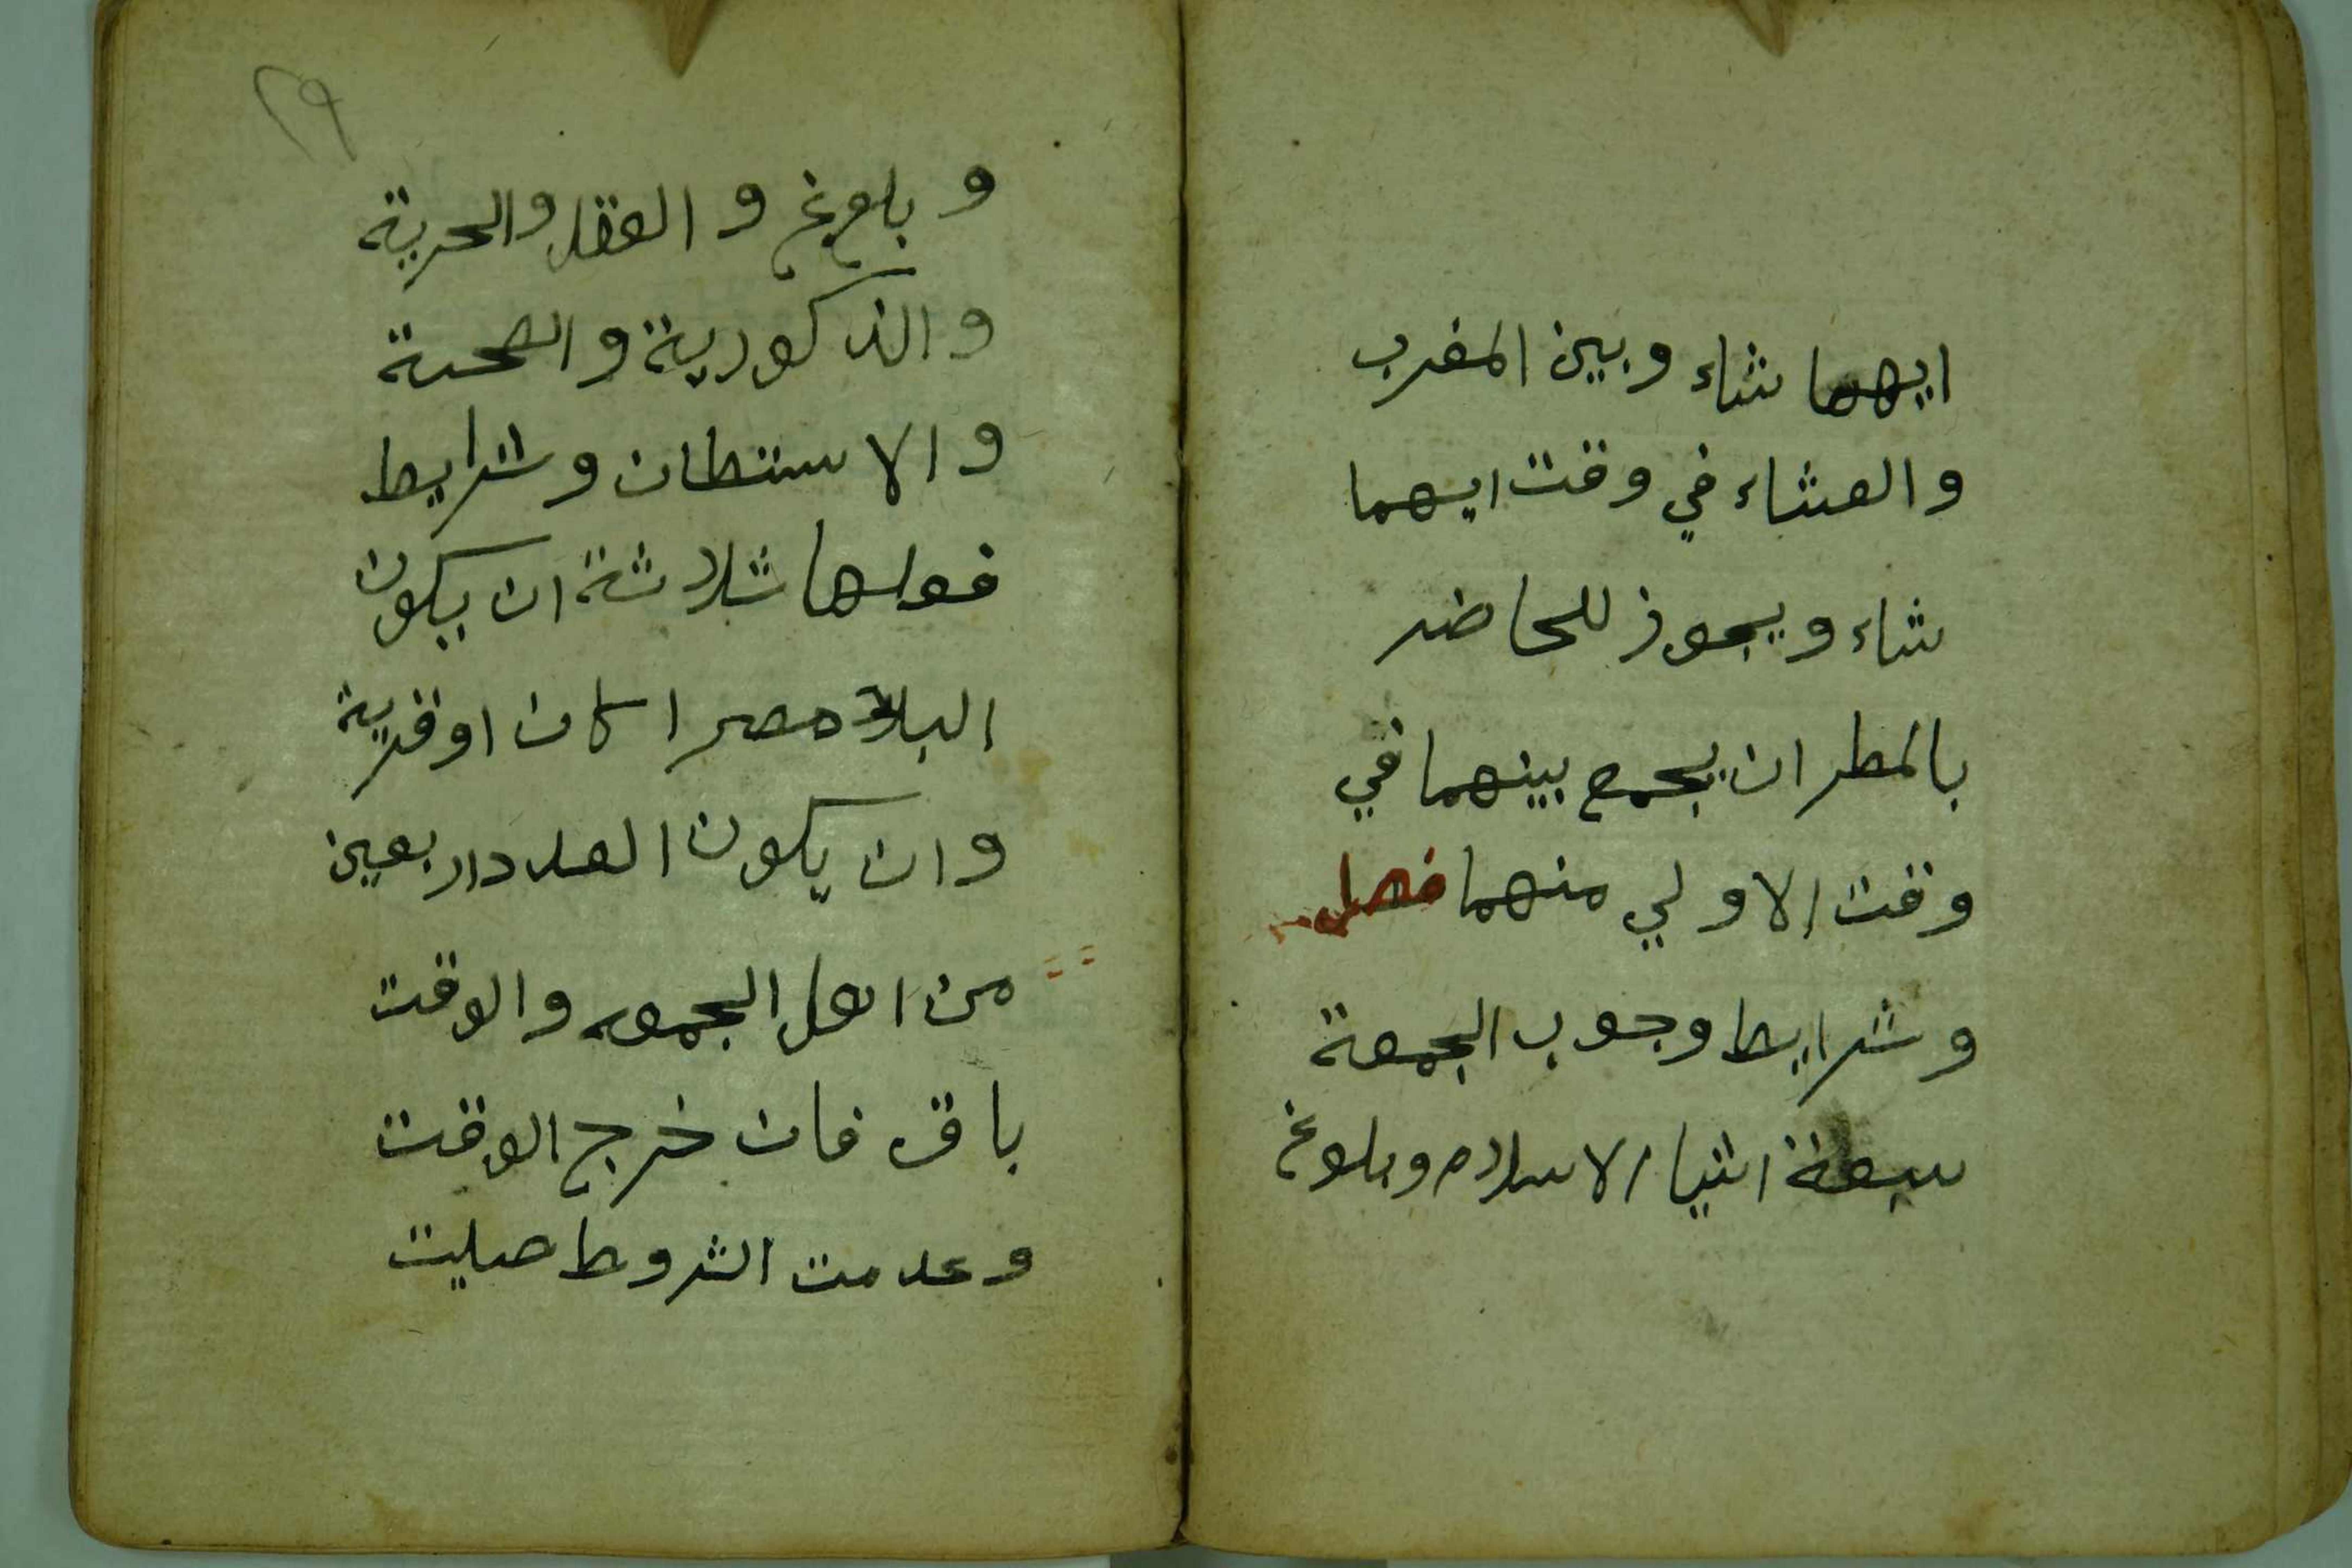 ايهما شاء وبين المغرب
والعشاء في وقت ايهما
شاء ويجوز للحاضر
بالمطر ان يجمع بينهما في
وقت الاولي منهما فصل
وشرايط وجوب الجمعة
سبعة اشيا الاسلام وبلوغ
٢٩
وبلوغ والعقل والحرية
والذكورية والصحة
والاستطان وشرايط
فعلها ثلاثة ان يكون
البلد مصرا كان او قرية
وان يكون العدد اربعين
من اهل الجمعه والوقت
باق فان خرج الوقت
وعدمت الشروط صليت